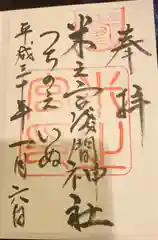 奉拝
米之宮浅間神社
つちのえいぬ
平成三十年一月六日